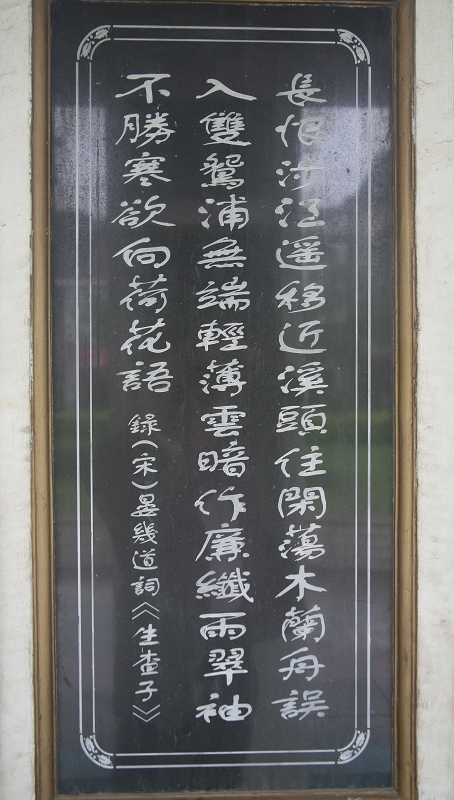 長恨涉江遥移近溪頭住閑蕩木蘭舟誤
入雙鴛浦無端輕薄雲暗作廉纖雨翠袖
不勝寒欲向荷花語 錄(宋)晏幾道詞《生查子》